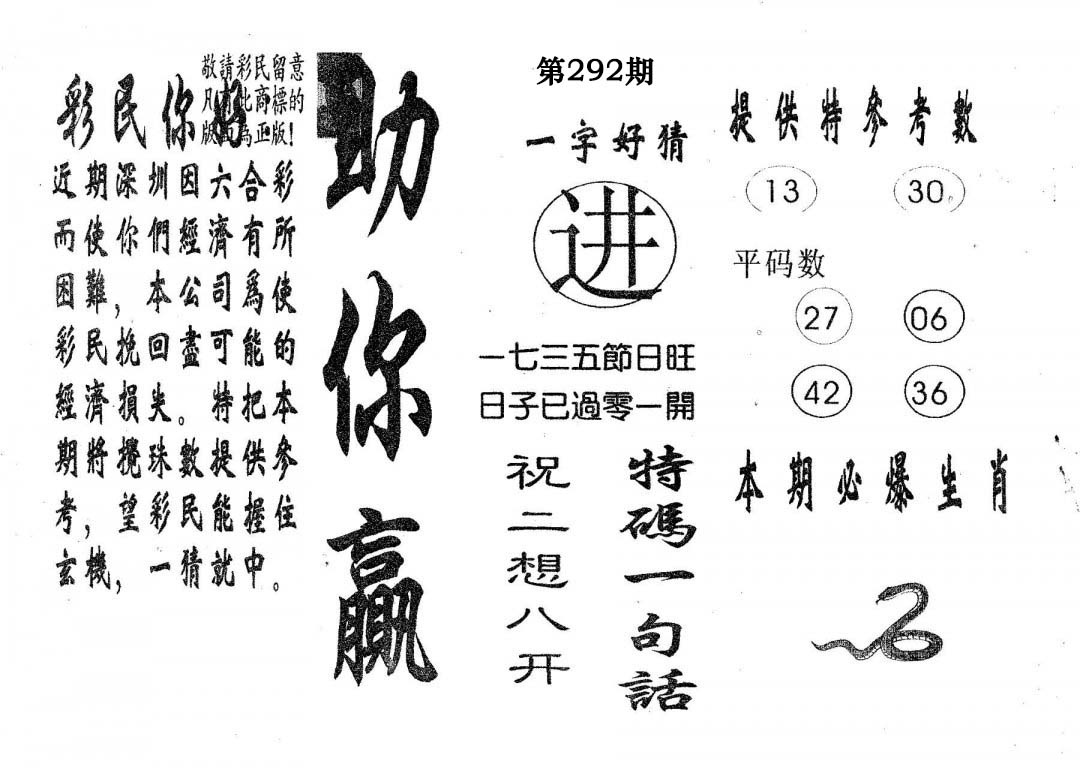 敬請彩民留意
凡有此商標的
版面為正版!
彩民你好
近期深圳因六合彩
而使你們經濟有所
困難，本公司爲使
彩民挽回盡可能的
經濟損失。特把本
期將攪珠數提供參
考，望彩民能握住
玄機，一猜就中。
助你赢
第292期
一字好猜
进
一七三五節日旺
日子已過零一開
特碼一句話
祝二想八开
提供特參考數
13 30
平码数
27 06
42 36
本期必爆生肖